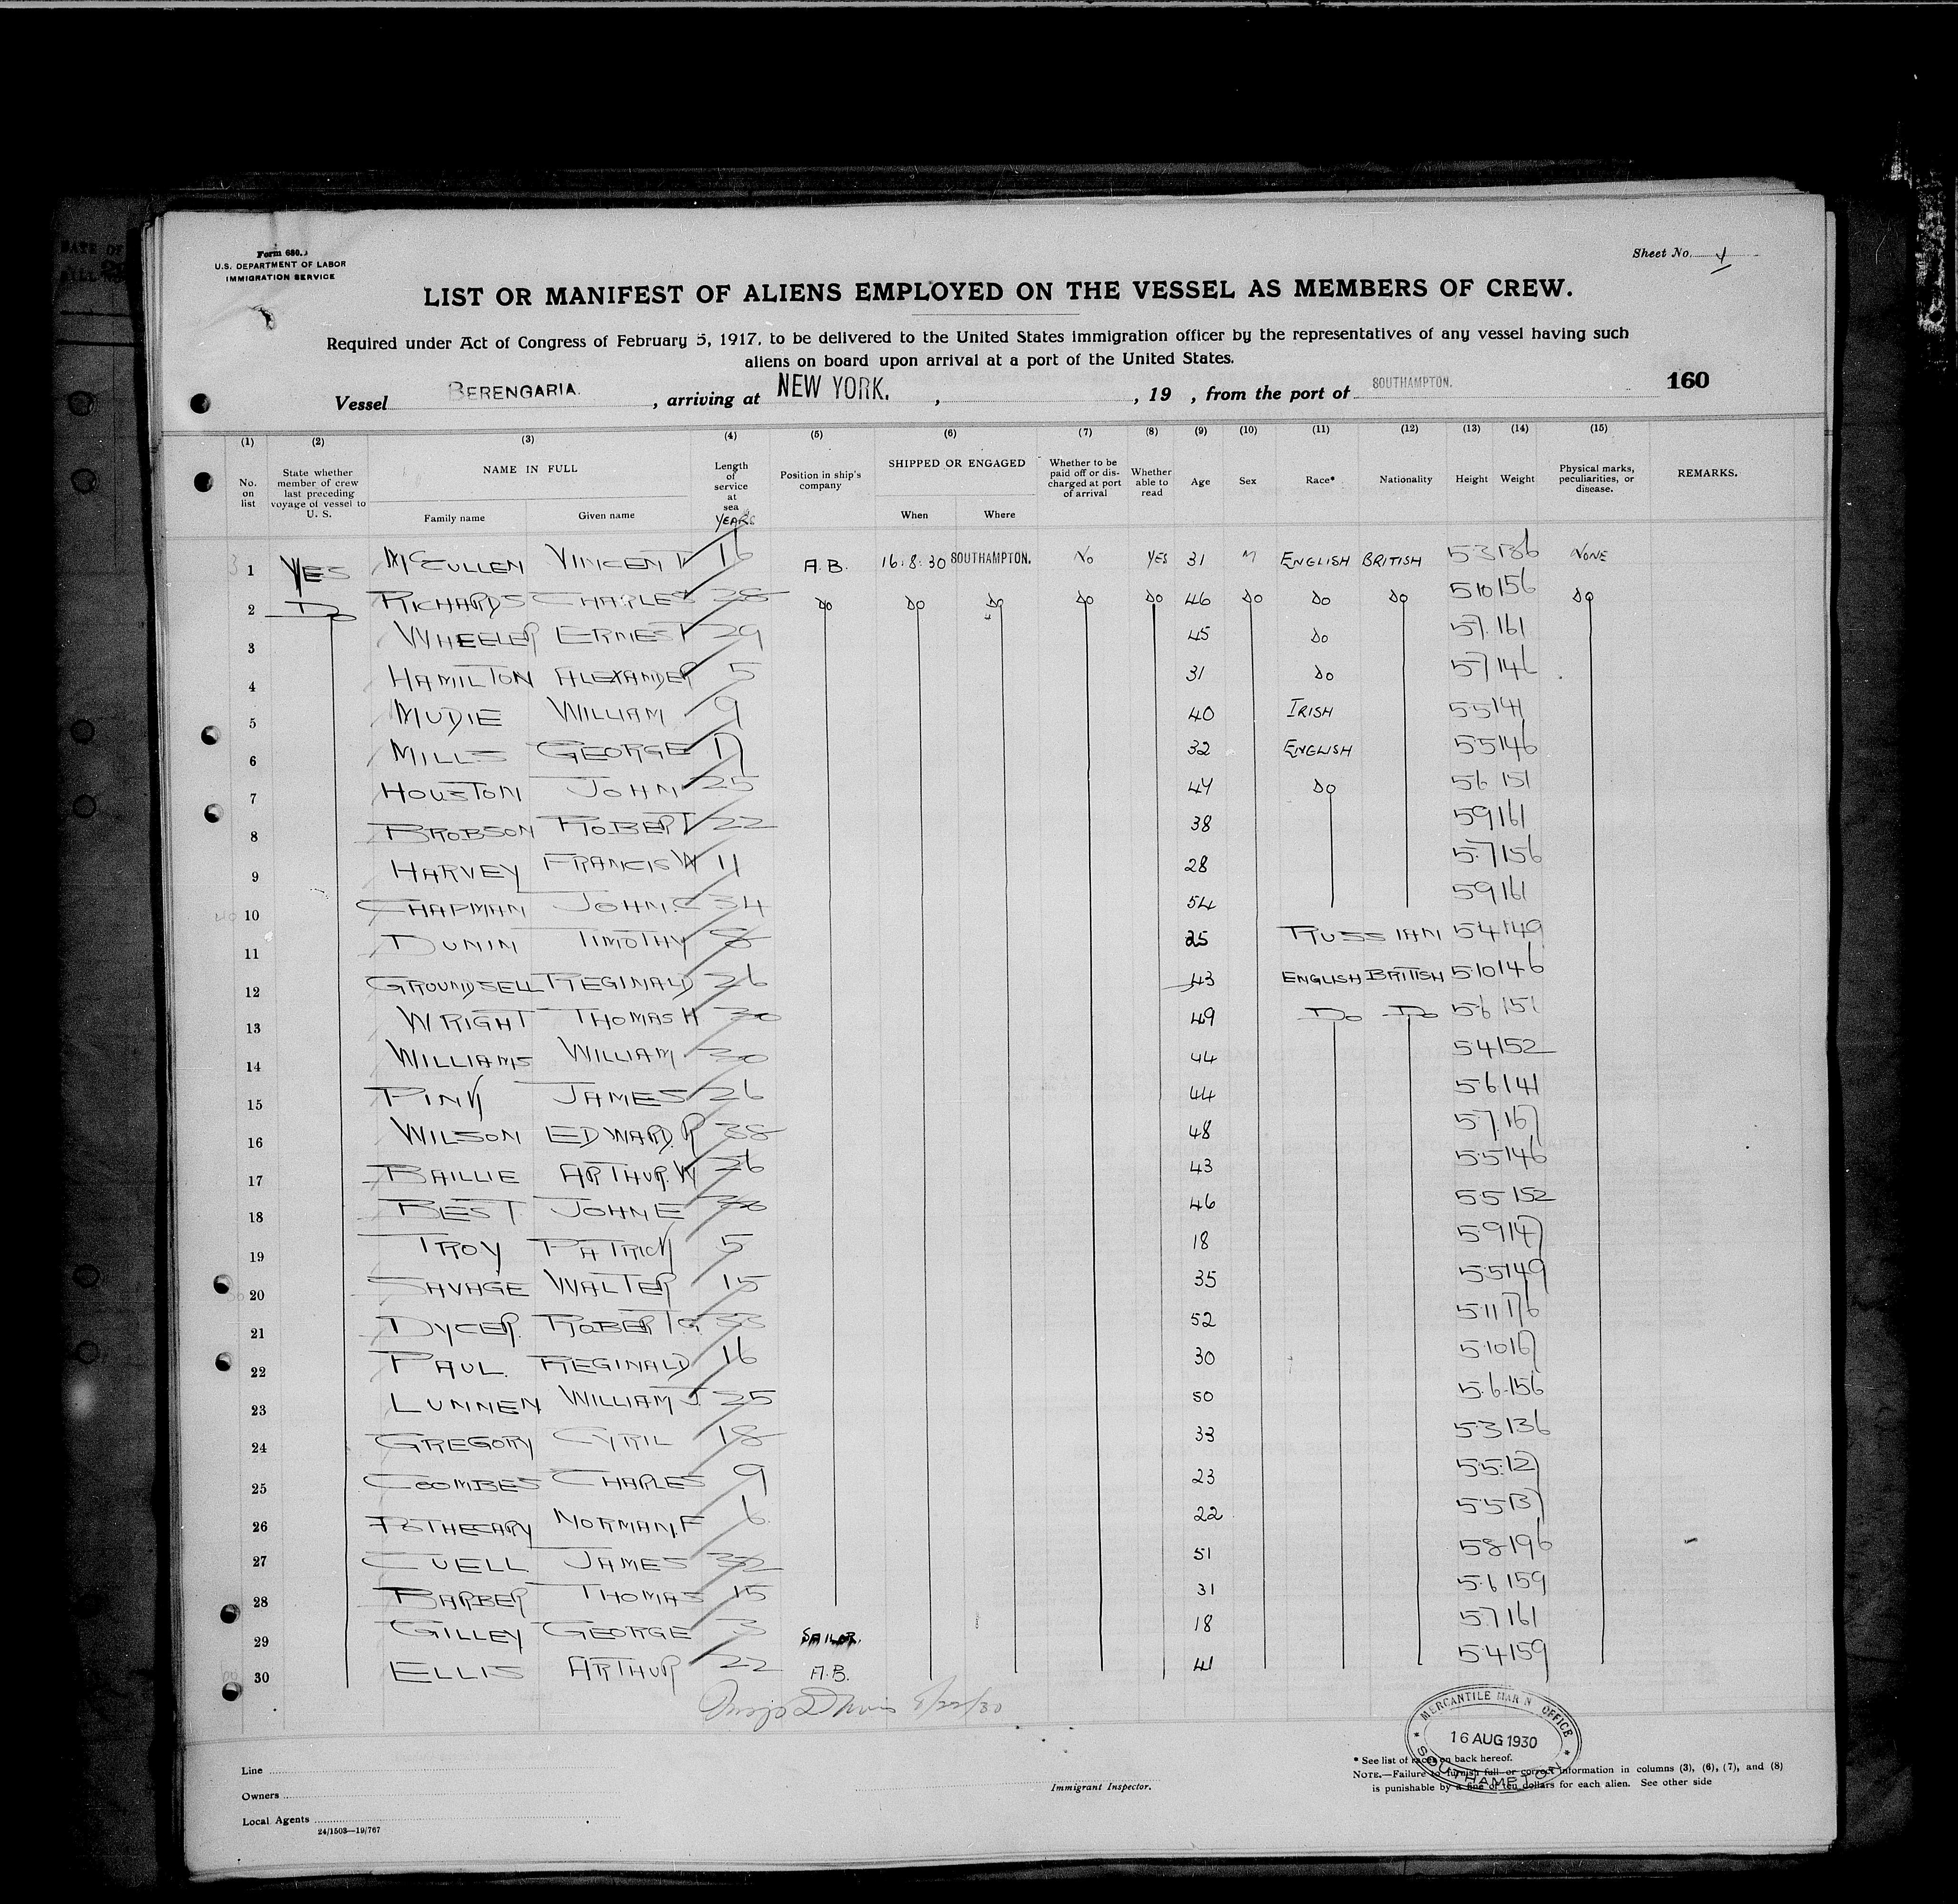 Form 680.
U.S. DEPARTMENT OF LABOR
IMMIGRATION SERVICE
Sheet No.
LIST OR MANIFEST OF ALIENS EMPLOYED ON THE VESSEL AS MEMBERS OF CREW.
Required under Act of Congress of February 5, 1917, to be delivered to the United States immigration officer by the representatives of any vessel having such
aliens on board upon arrival at a port of the United States.
Vessel BERENGARIA. , arriving at NEW YORK. , , 19 , from the port of SOUTHAMPTON. 160
(1) (2) (3) (4) (5) (6) (7) (8) (9) (10) (11) (12) (13) (14) (15)
No. on list State whether member of crew last preceding voyage of vessel to U. S. NAME IN FULL Family name Given name Length of service at sea YEARS Position in ship's company SHIPPED OR ENGAGED When Where Whether to be paid off or discharged at port of arrival Whether able to read Age Sex Race* Nationality Height Weight Physical marks, peculiarities, or disease. REMARKS.
1 YES McCULLEN VINCENT 16 A.B. 16.8.30 SOUTHAMPTON. NO YES 31 M ENGLISH BRITISH 5.3 136 NONE
2 DO RICHARDS CHARLES 28 DO DO DO DO DO 46 DO DO DO 5 10 156 DO
3 WHEELER ERNEST 29 45 DO 5 7 161
4 HAMILTON ALEXANDER 5 31 DO 5 7 146
5 MUDIE WILLIAM 9 40 IRISH 5 5 141
6 MILLS GEORGE 17 32 ENGLISH 5 5 146
7 HOUSTON JOHN 25 44 DO 5 6 151
8 BROBSON ROBERT 22 38 5 9 161
9 HARVEY FRANCIS W 11 28 5.7 156
10 CHAPMAN JOHN.C 34 54 5 9 161
11 DUNIN TIMOTHY 8 25 RUSSIAN 5 4 149
12 GROUNDSELL REGINALD 26 43 ENGLISH BRITISH 5.10 146
13 WRIGHT THOMAS H 30 49 DO DO 5.6 151
14 WILLIAMS WILLIAM 30 44 5.4 152
15 PINK JAMES 26 44 5.6 141
16 WILSON EDWARD.R 38 48 5.7. 167
17 BAILLIE ARTHUR.W 26 43 5.5 146
18 BEST JOHN E 46 5.5 152
19 TROY PATRICK 5 18 5.9 147
20 SAVAGE WALTER 15 35 5.5 149
21 DYCER. ROBERT.G. 33 52 5.11 176
22 PAUL. REGINALD 16 30 5.10 167
23 LUNNEN WILLIAM J. 25 50 5.6.156
24 GREGORY CYRIL 18 33 5.3 136
25 COOMBES CHARLES 9 23 5.5.127
26 POTHECARY NORMAN.F 6 22 5.5 137
27 CUELL JAMES 32 51 5.8 196
28 BARBER THOMAS 15 31 5.6 159
29 GILLEY GEORGE 3 SAILOR. 18 5.7 161
30 ELLIS ARTHUR 22 A.B. 41 5.4 159
8/22/30
MERCANTILE MARINE OFFICE
16 AUG 1930
SOUTHAMPTON
Line
Owners
Local Agents
24/1503—19/767
Immigrant Inspector.
* See list of races on back hereof.
NOTE.—Failure to furnish full or correct information in columns (3), (6), (7), and (8)
is punishable by a fine of ten dollars for each alien. See other side